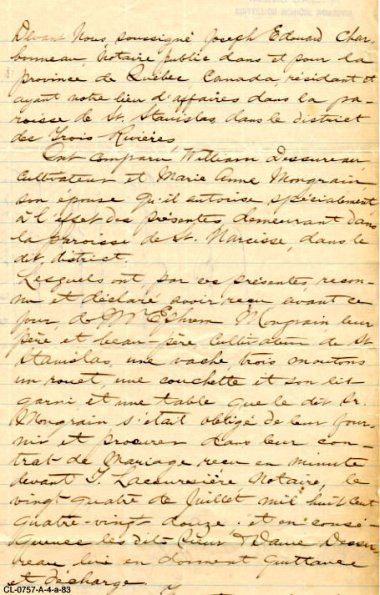 Devant Nous soussigné Joseph Edouard Char-
bonneau, Notaire Public dans et pour la
province de Québec Canada, résidant et
ayant notre lieu d'affaires dans la pa-
roisse de St. Stanislas, dans le district
des Trois-Rivières
Ont comparu William Dessureau
Cultivateur et Marie Anne Mongrain
son epouse qu'il autorise spécialement
à l'effet des présentes, demeurant dans
la paroisse de St. Narcisse, dans le
dit district.
Lesquels ont, par ces présentes, recon-
nu et déclaré avoir reçu avant ce
jour, de Mr Ephrem Mongrain leur
père et beau-père Cultivateur de St
Stanislas, une vache trois moutons
un rouet, une couchette et son lit
garni et une table que le dit Sr.
Mongrain s'était obligé de leur four-
nir et procurer dans leur con-
trat de Mariage reçu en minute
devant Lacoursière Notaire, le
vingt quatre de Juillet mil huit cent
quatre-vingt douze. et en consé-
quence les dits Sieur & Dame Dessu-
reau lui en donnent quittance
et décharge.
CL-0757-A-4-a-83